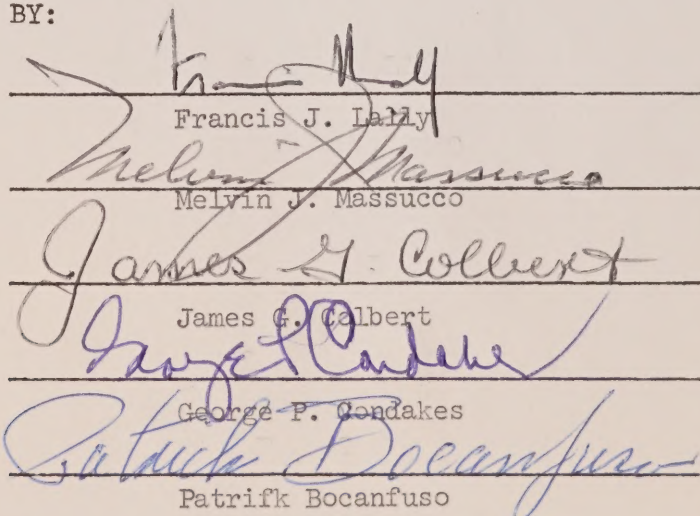 BY:
Francis Lally
Francis J. Lally
Melvin J. Massucco
Melvin J. Massucco
James G. Colbert
James G. Colbert
George P. Condakes
George P. Condakes
Patrick Bocanfuso
Patrifk Bocanfuso